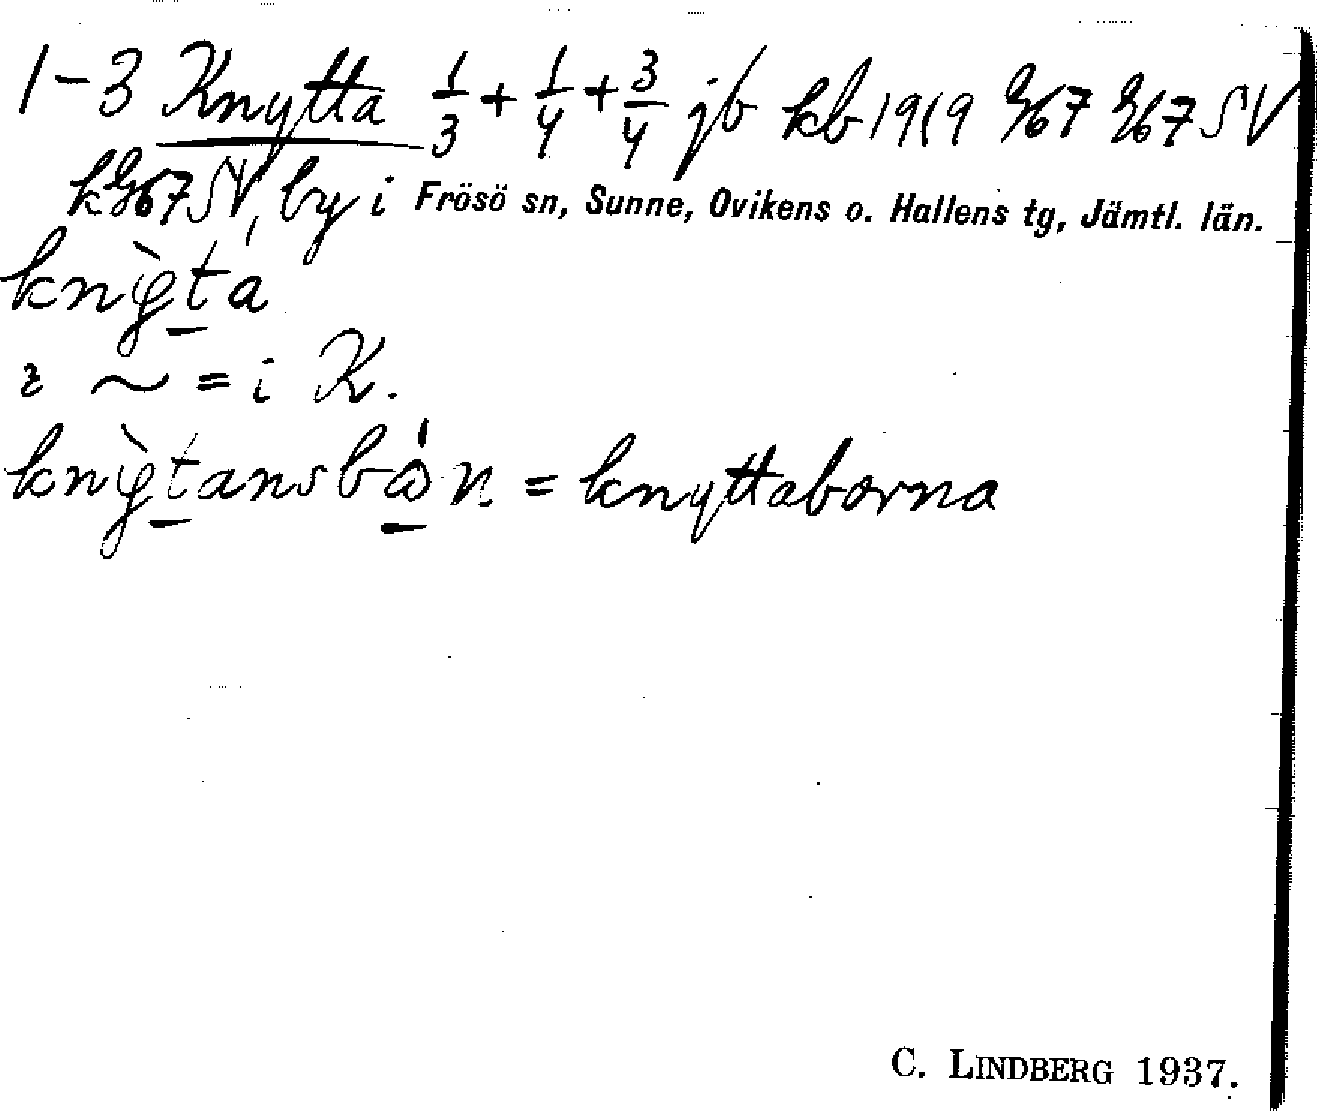 1-3 Knytta 1/3 + 1/4 + 3/4 jb kb 1919 G67 G67 SV
kG67SV, by i Frösö sn, Sunne, Ovikens o. Hallens tg, Jämtl. län.
knỳta
~ = i K.
knỳtansbån = knyttaborna
C. LINDBERG 1937.